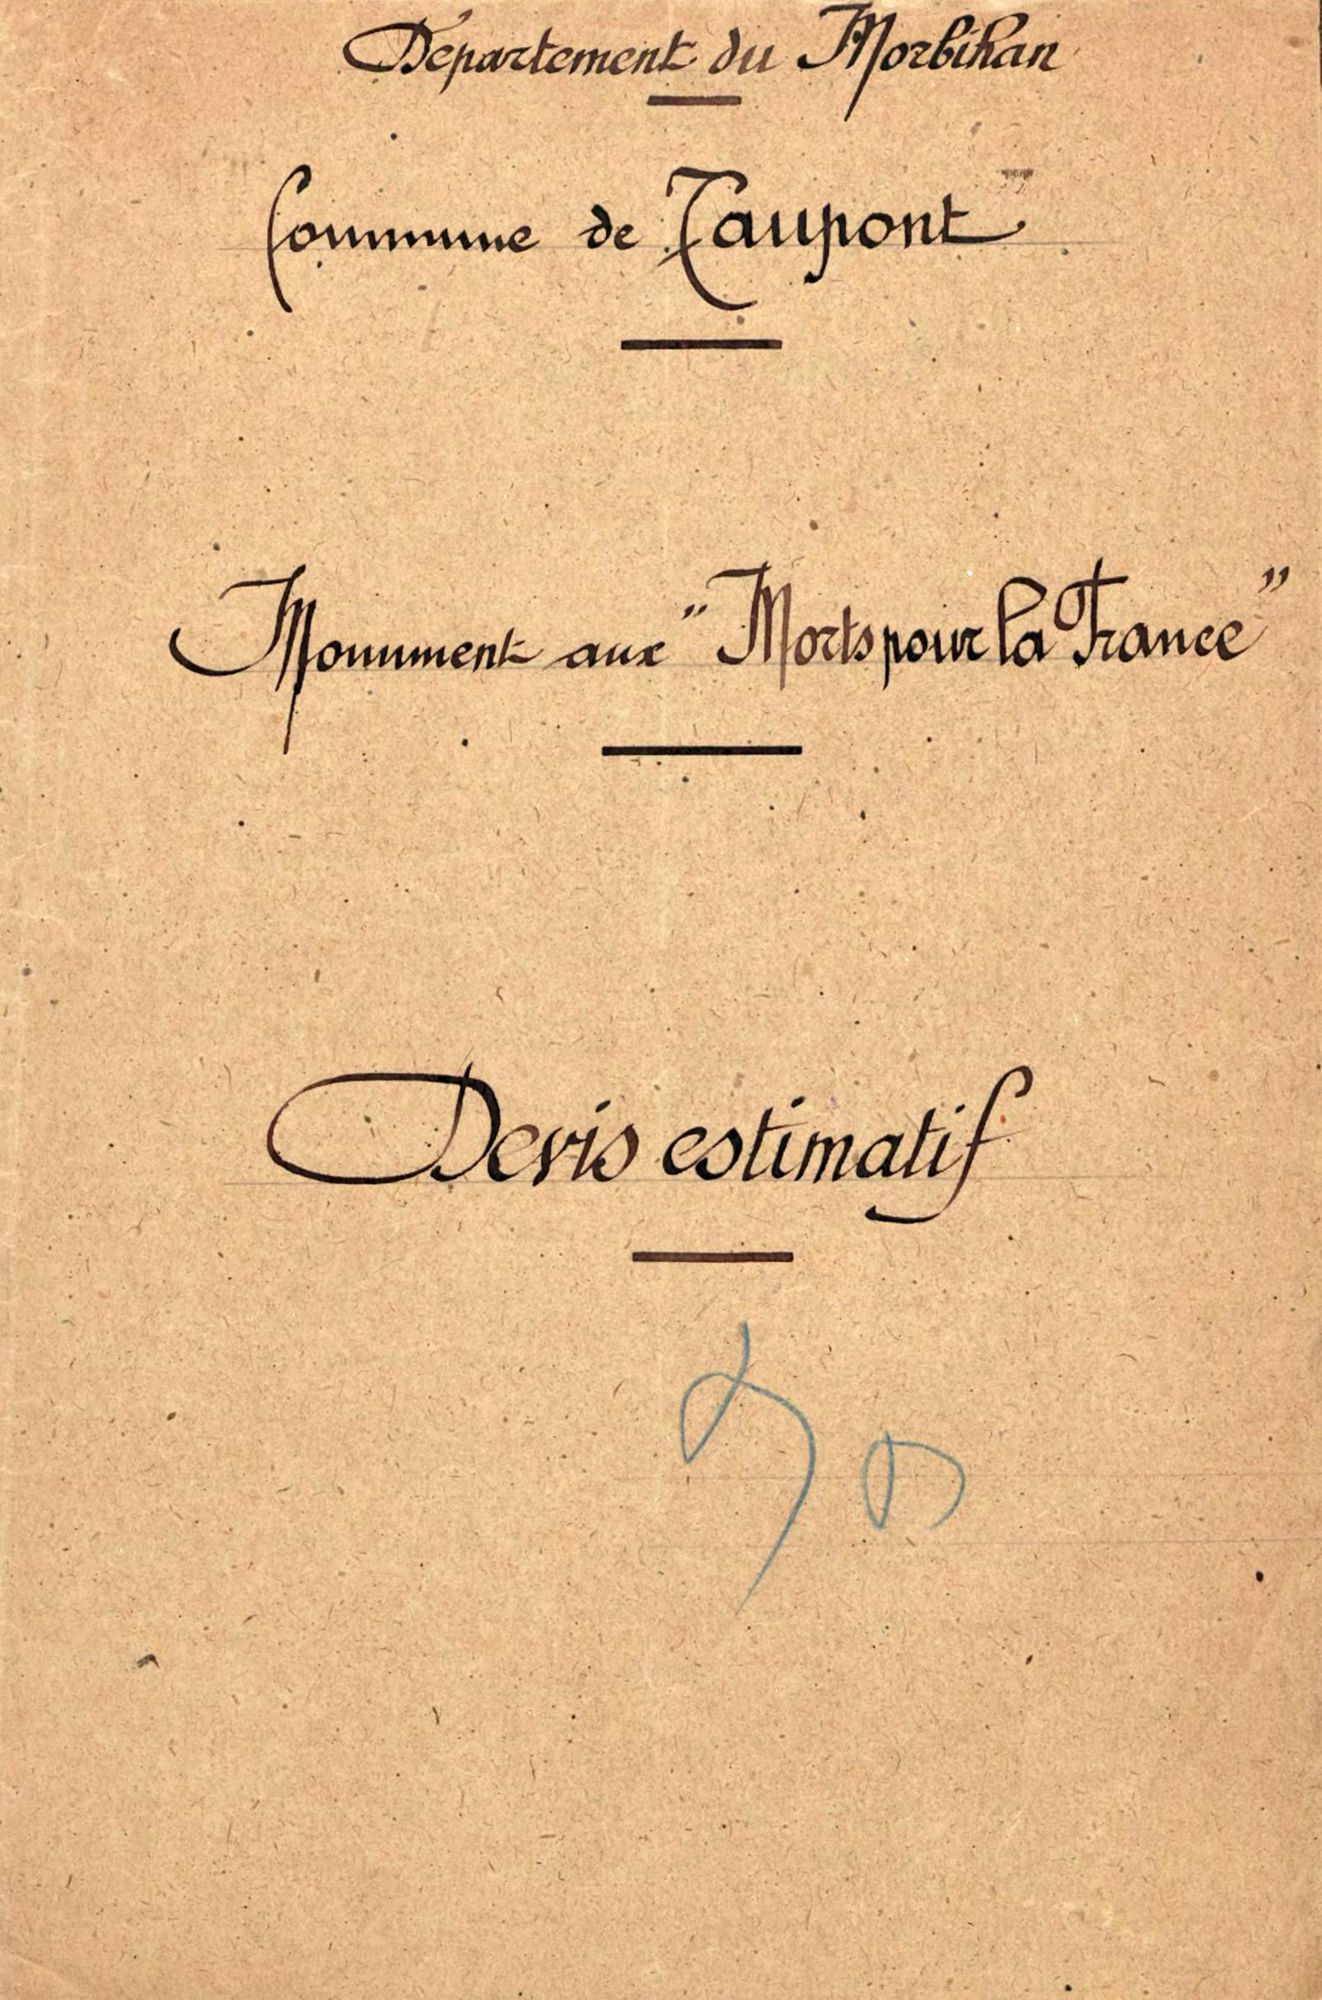 Département du Morbihan
Commune de Taupont
Monument aux "Morts pour la France"
Devis estimatif